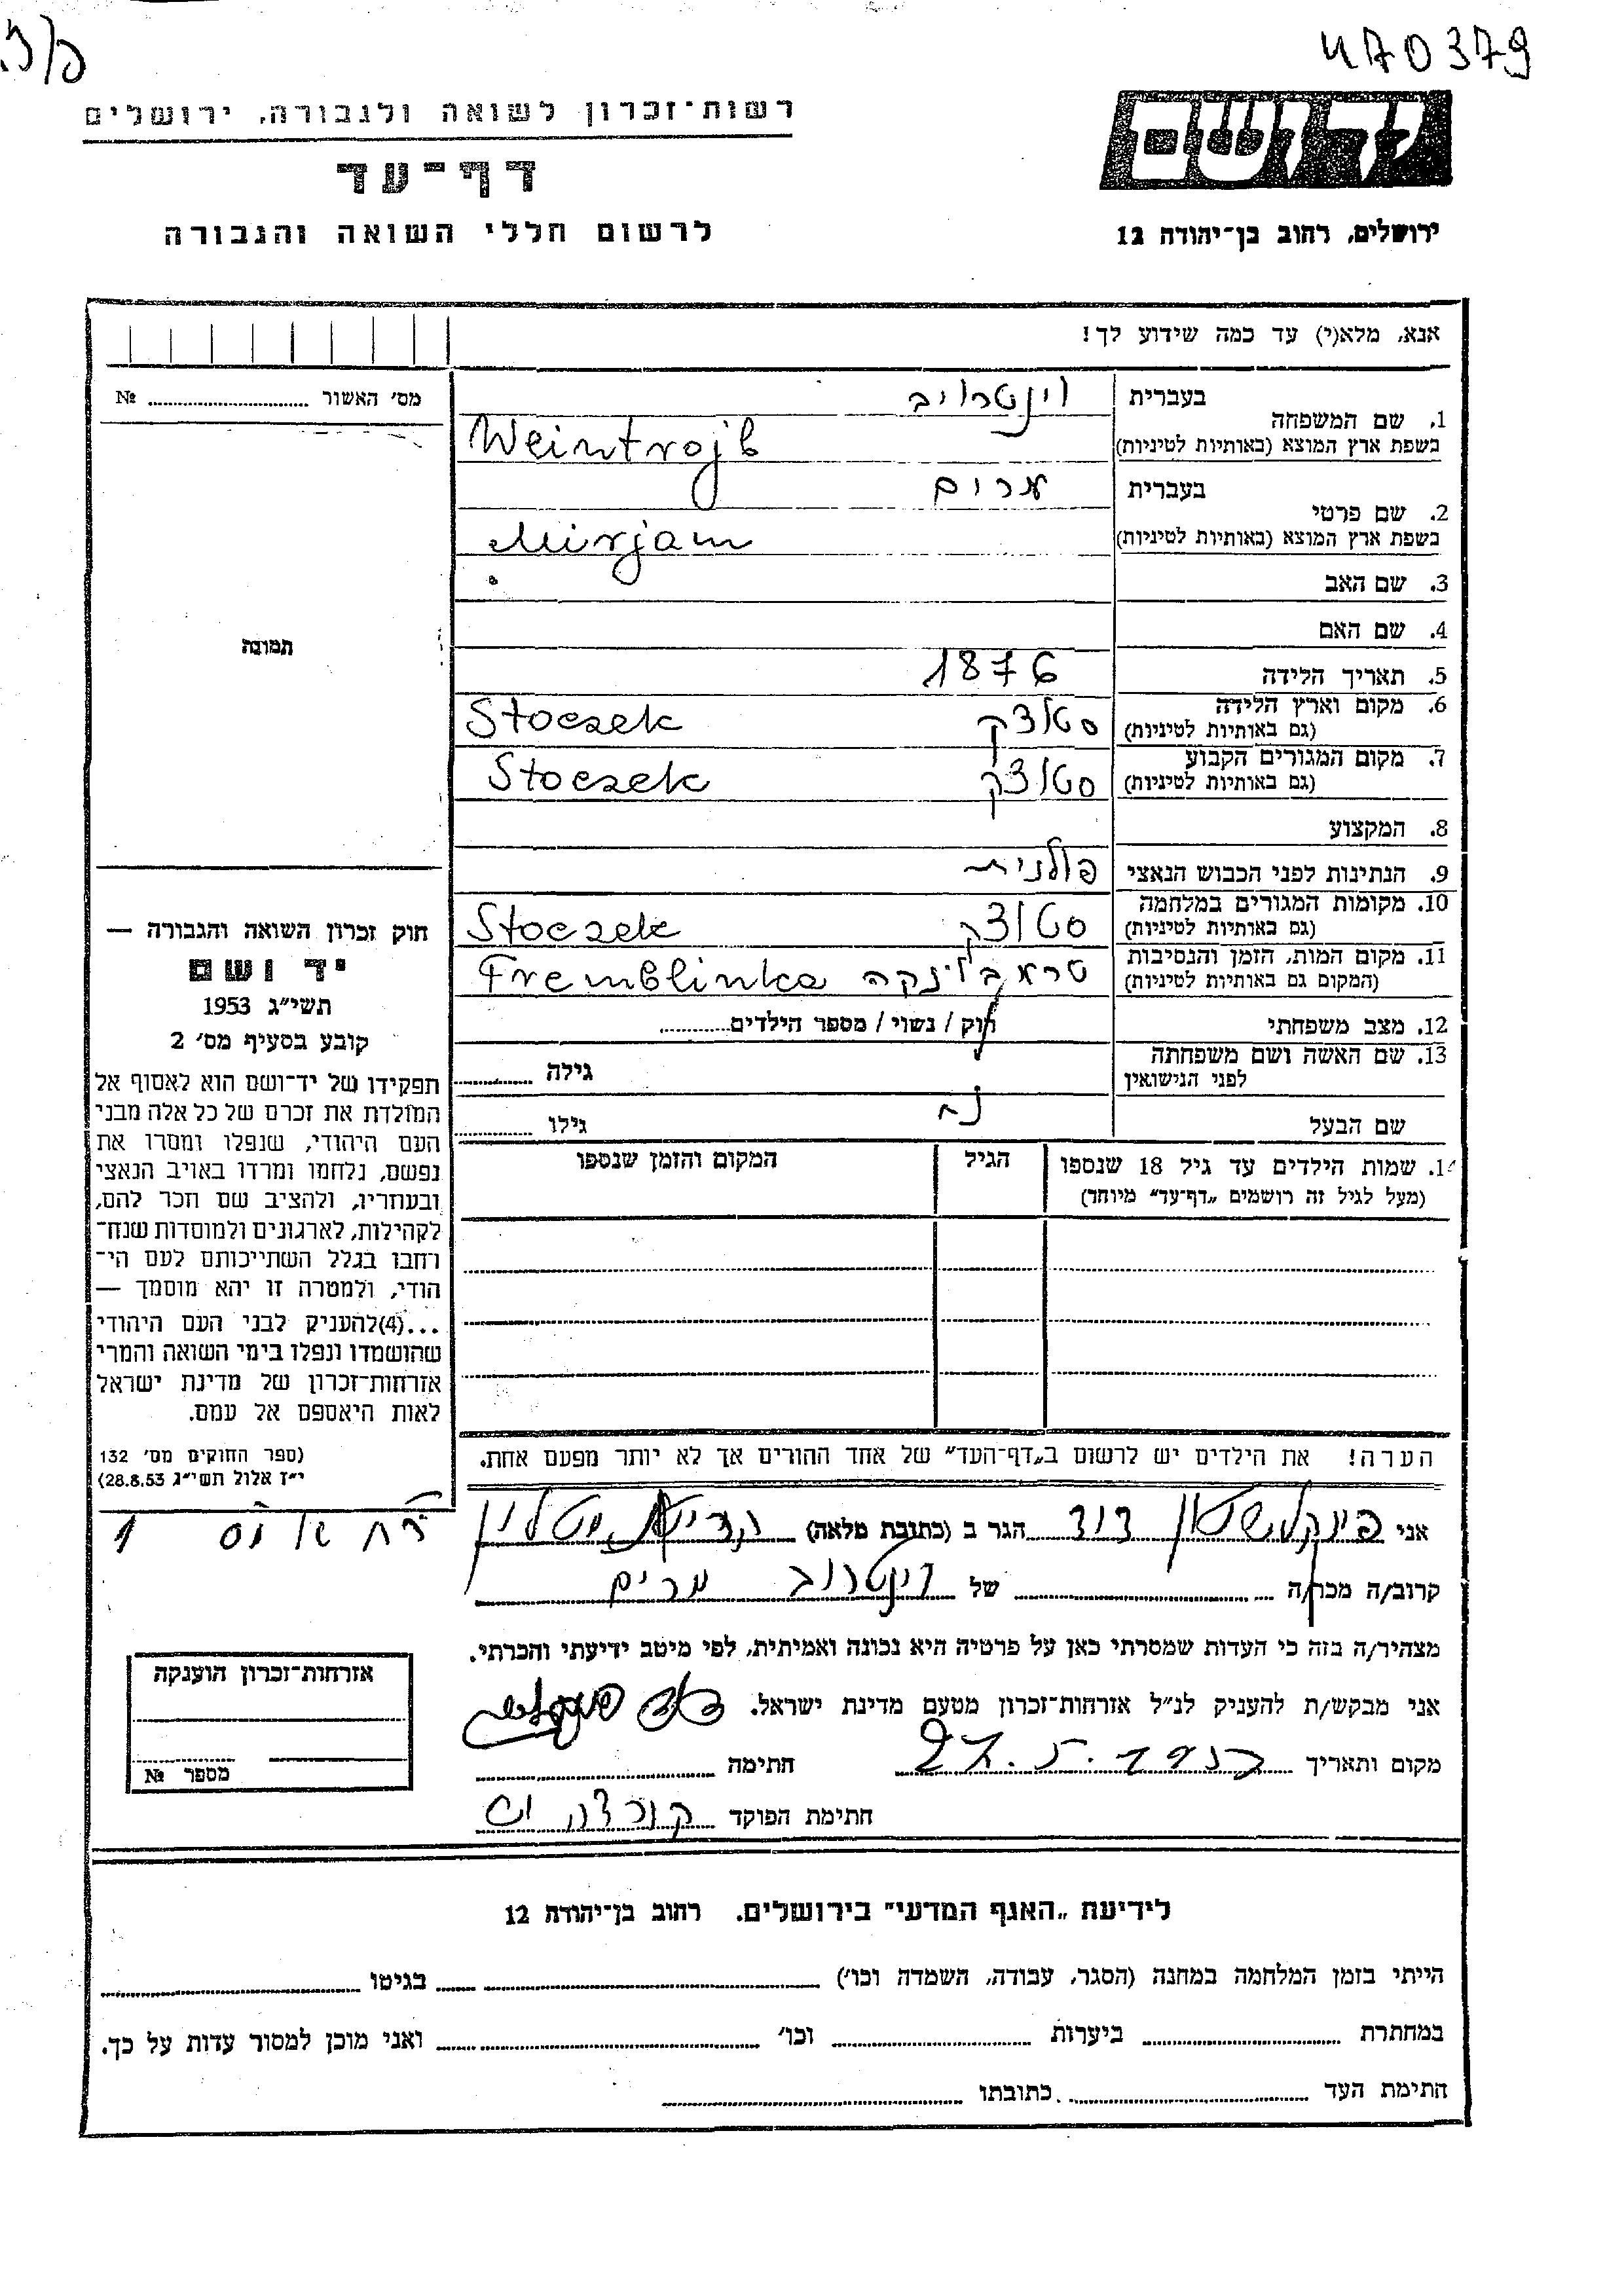 470379
רשות-זכרון לשואה ולגבורה, ירושלים
דף-עד
לרשום חללי השואה והגבורה
ירושלים, רחוב בן-יהודה 12
אנא, מלא(י) עד כמה שידוע לך!
מס׳ האשור № 
1. שם המשפחה
בעברית וינטרויב
בשפת ארץ המוצא (באותיות לטיניות) Weintrojb
2. שם פרטי
בעברית מרים
בשפת ארץ המוצא (באותיות לטיניות) Mirjam
3. שם האב
4. שם האם
5. תאריך הלידה 1876
6. מקום וארץ הלידה סטוצק Stoczek
(גם באותיות לטיניות)
7. מקום המגורים הקבוע סטוצק Stoczek
(גם באותיות לטיניות)
8. המקצוע
9. הנתינות לפני הכבוש הנאצי פולנית
10. מקומות המגורים במלחמה סטוצק Stoczek
(גם באותיות לטיניות)
11. מקום המות, הזמן והנסיבות טרמבלינקה Tremblinka
(המקום גם באותיות לטיניות)
12. מצב משפחתי רוק / נשוי / מספר הילדים
13. שם האשה ושם משפחתה גילה
לפני הנישואין
שם הבעל נח גילו
14. שמות הילדים עד גיל 18 שנספו הגיל המקום והזמן שנספו
(מעל לגיל זה רושמים „דף-עד״ מיוחד)
הערה! את הילדים יש לרשום ב„דף-העד״ של אחד ההורים אך לא יותר מפעם אחת.
תמונה
חוק זכרון השואה והגבורה —
יד ושם
תשי״ג 1953
קובע בסעיף מס׳ 2
תפקידו של יד-ושם הוא לאסוף אל
המולדת את זכרם של כל אלה מבני
העם היהודי, שנפלו ומסרו את
נפשם, נלחמו ומרדו באויב הנאצי
ובעוזריו, ולהציב שם וזכר להם,
לקהילות, לארגונים ולמוסדות שנח-
רבו בגלל השתייכותם לעם הי-
הודי, ולמטרה זו יהא מוסמך —
...(4)להעניק לבני העם היהודי
שהושמדו ונפלו בימי השואה והמרי
אזרחות-זכרון של מדינת ישראל
לאות היאספם אל עמם.
(ספר החוקים מס׳ 132
י״ז אלול תשי״ג 28.8.53)
אני פינקלשטין דוד הגר ב (כתובת מלאה)
קרוב/ה מכר/ה של וינטרוב מרים
מצהיר/ה בזה כי העדות שמסרתי כאן על פרטיה היא נכונה ואמיתית, לפי מיטב ידיעתי והכרתי.
אני מבקש/ת להעניק לנ״ל אזרחות-זכרון מטעם מדינת ישראל.
מקום ותאריך 27.5.1957 חתימה
חתימת הפוקד
אזרחות-זכרון הוענקה
מספר №
לידיעת „האגף המדעי״ בירושלים. רחוב בן-יהודה 12
הייתי בזמן המלחמה במחנה (הסגר, עבודה, השמדה וכו׳) בגיטו
במחתרת ביערות וכו׳ ואני מוכן למסור עדות על כך.
חתימת העד כתובתו